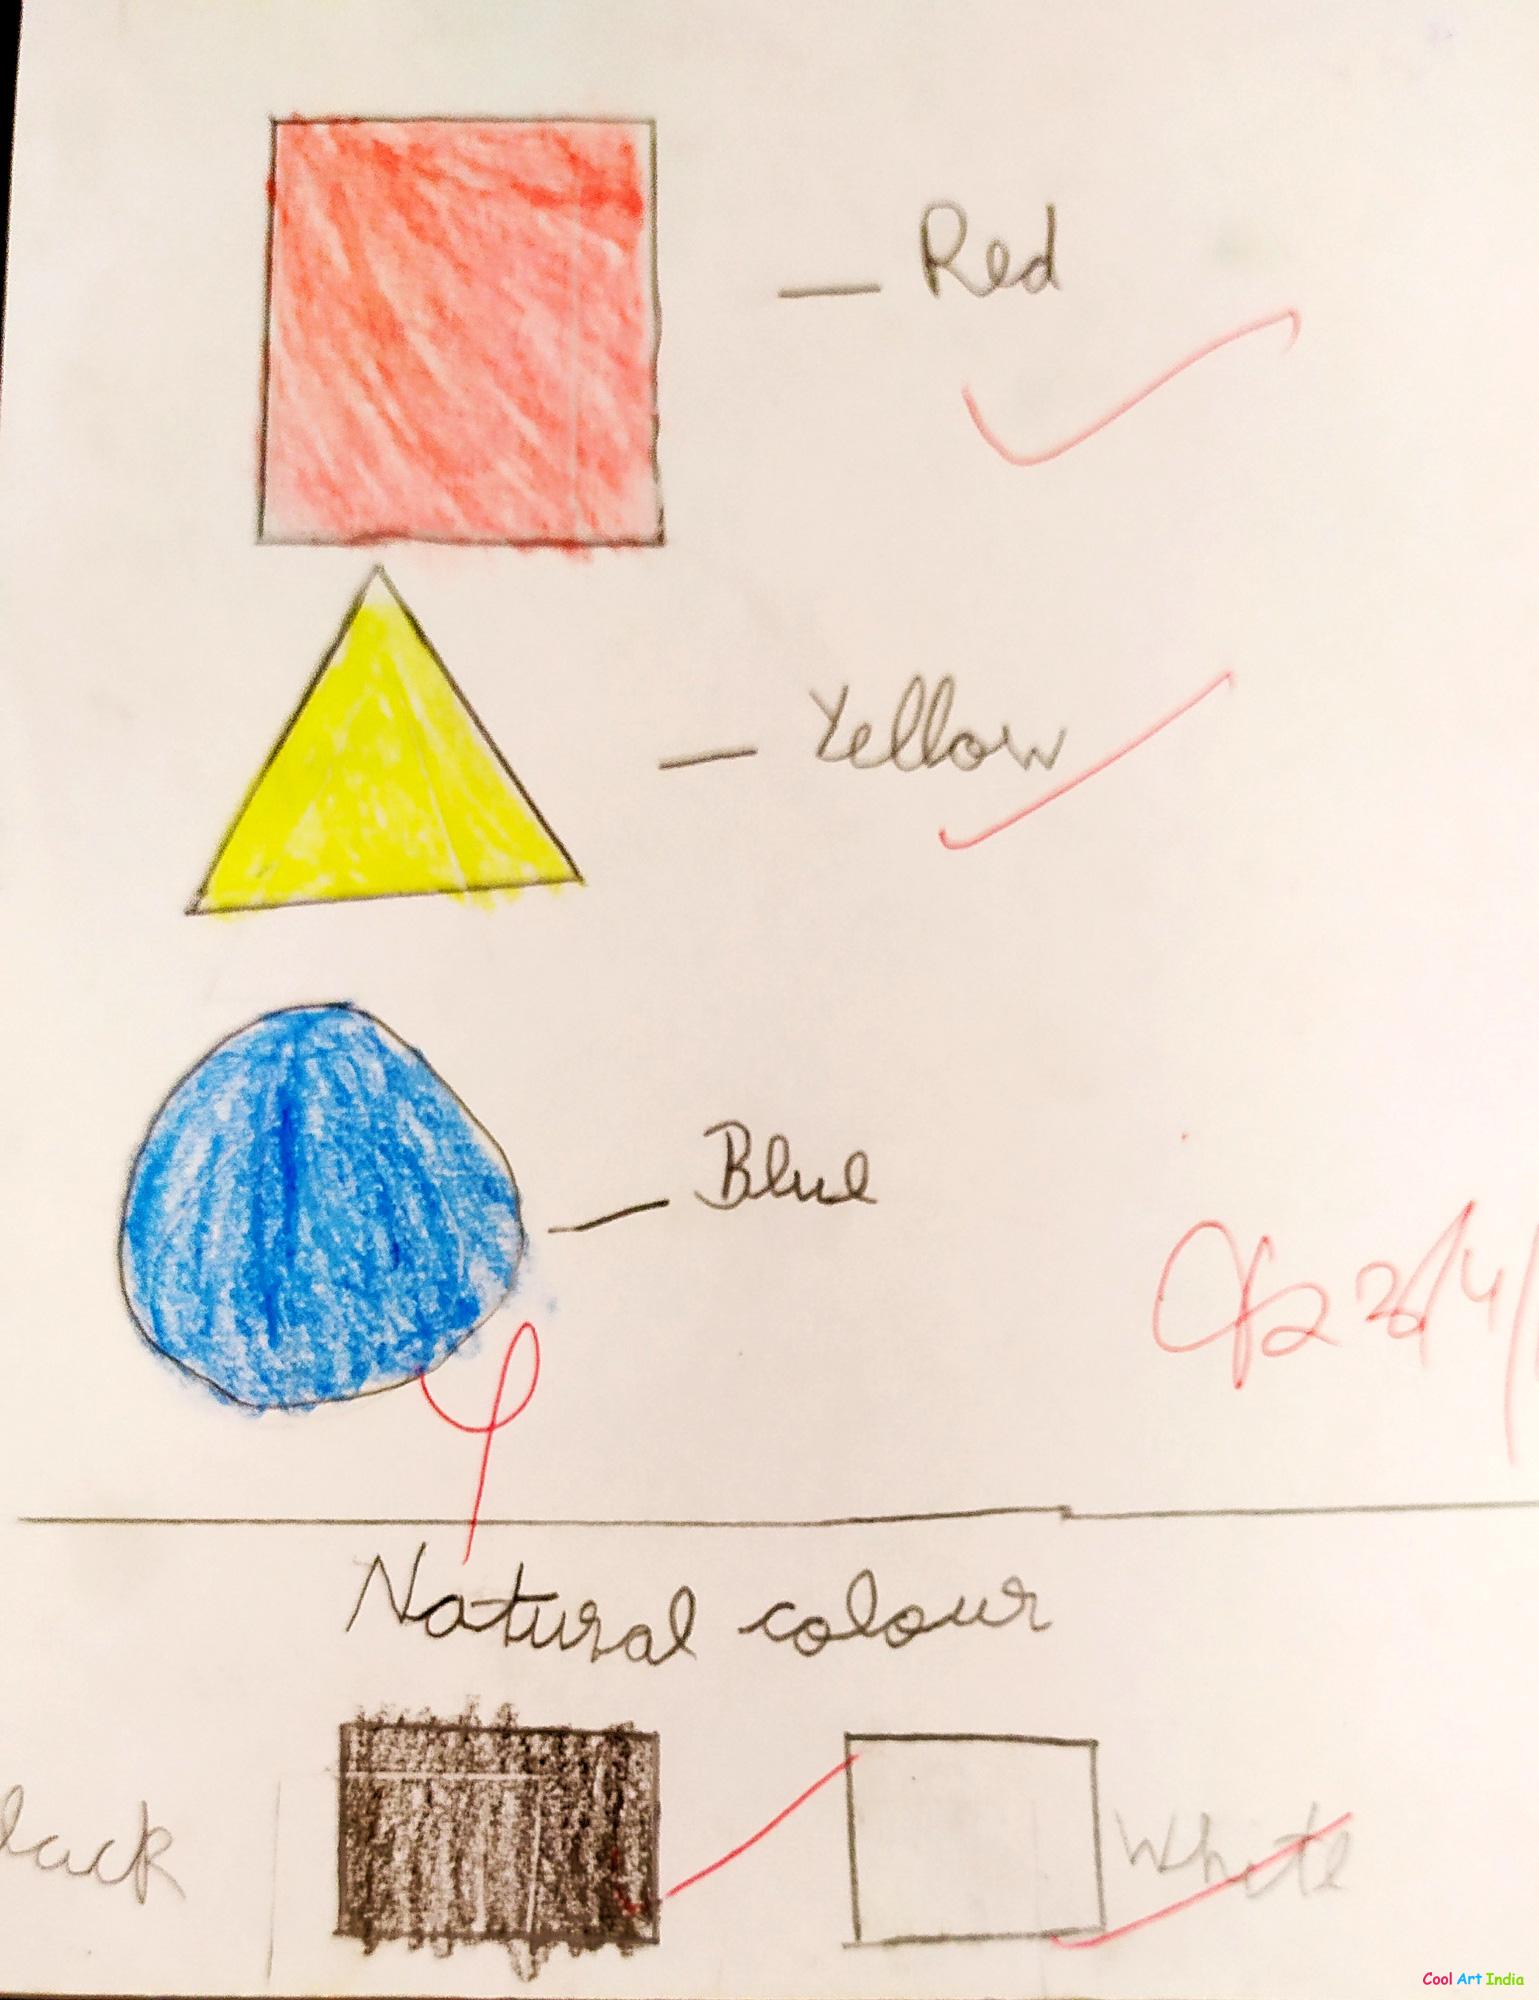 Red
Yellow
Blue
Natural colour
lack
White
Cool Art India